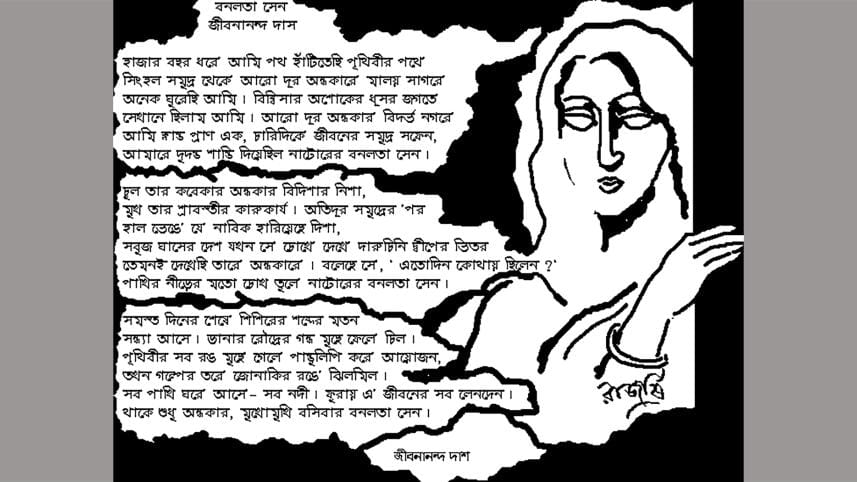 বনলতা সেন
জীবনানন্দ দাস
হাজার বছর ধরে আমি পথ হাঁটিতেছি পৃথিবীর পথে
সিংহল সমুদ্র থেকে আরো দূর অন্ধকারে মালয় সাগরে
অনেক ঘুরেছি আমি । বিম্বিসার অশোকের ধূসর জগতে
সেখানে ছিলাম আমি । আরো দূর অন্ধকার বিদর্ভ নগরে
আমি ক্লান্ত প্রাণ এক, চারিদিকে জীবনের সমুদ্র সফেন,
আমারে দুদন্ড শান্তি দিয়েছিল নাটোরের বনলতা সেন ।
চুল তার কবেকার অন্ধকার বিদিশার নিশা,
মুখ তার শ্রাবস্তীর কারুকার্য । অতিদূর সমুদ্রের 'পর
হাল ভেঙে যে নাবিক হারিয়েছে দিশা,
সবুজ ঘাসের দেশ যখন সে চোখে দেখে দারুচিনি দ্বীপের ভিতর
তেমনই দেখেছি তারে অন্ধকারে । বলেছে সে, ' এতোদিন কোথায় ছিলেন ?'
পাখির নীড়ের মতো চোখ তুলে নাটোরের বনলতা সেন ।
সমস্ত দিনের শেষে শিশিরের শব্দের মতন
সন্ধ্যা আসে । ডানার রৌদ্রের গন্ধ মুছে ফেলে চিল ।
পৃথিবীর সব রঙ মুছে গেলে পান্ডুলিপি করে আয়োজন,
তখন গল্পের তরে জোনাকির রঙে ঝিলমিল ।
সব পাখি ঘরে আসে - সব নদী । ফুরায় এ জীবনের সব লেনদেন ।
থাকে শুধু অন্ধকার, মুখোমুখি বসিবার বনলতা সেন ।
রাজর্ষি
জীবনানন্দ দাশ